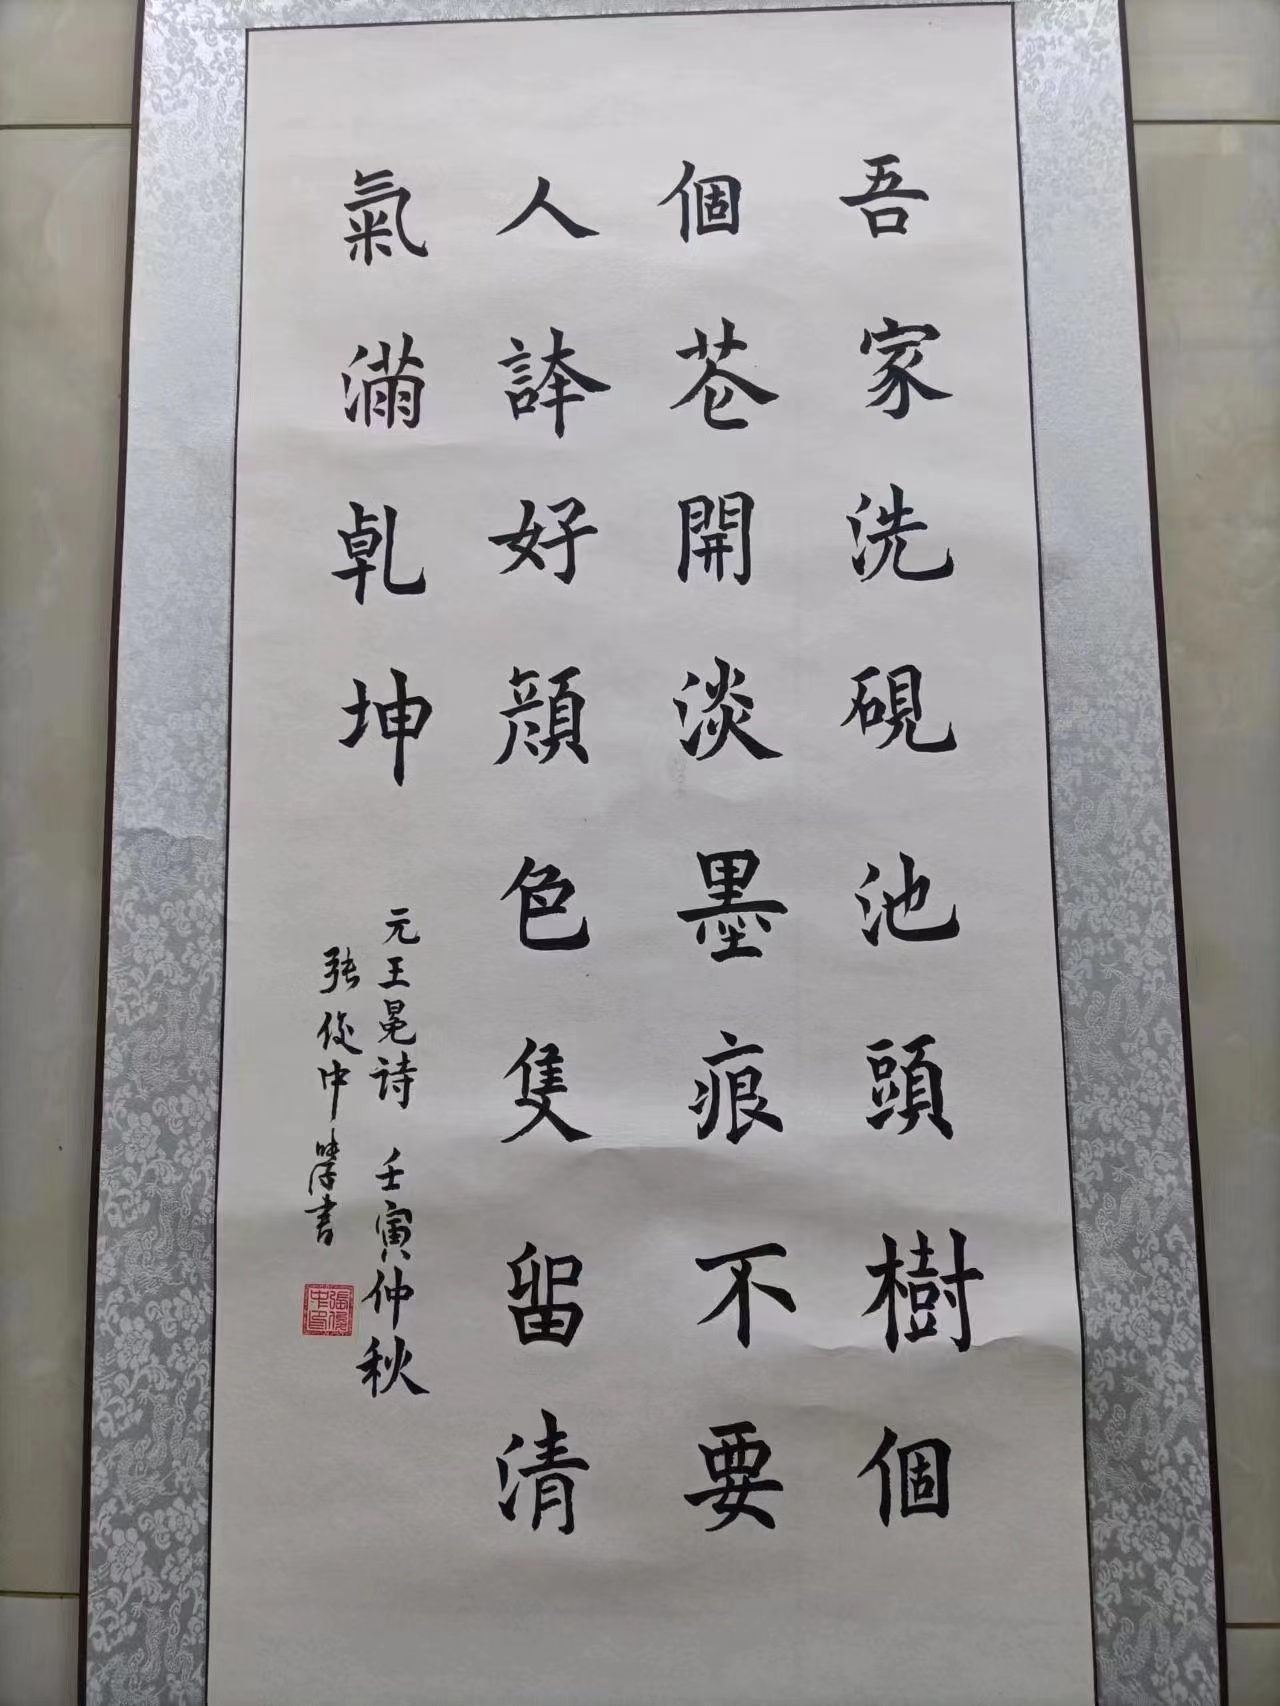 吾家洗硯池頭樹個
個芲開淡墨痕不要
人誇好顔色隻留清
氣滿乾坤
元王冕詩 壬寅仲秋
張俊中學書
張俊中印